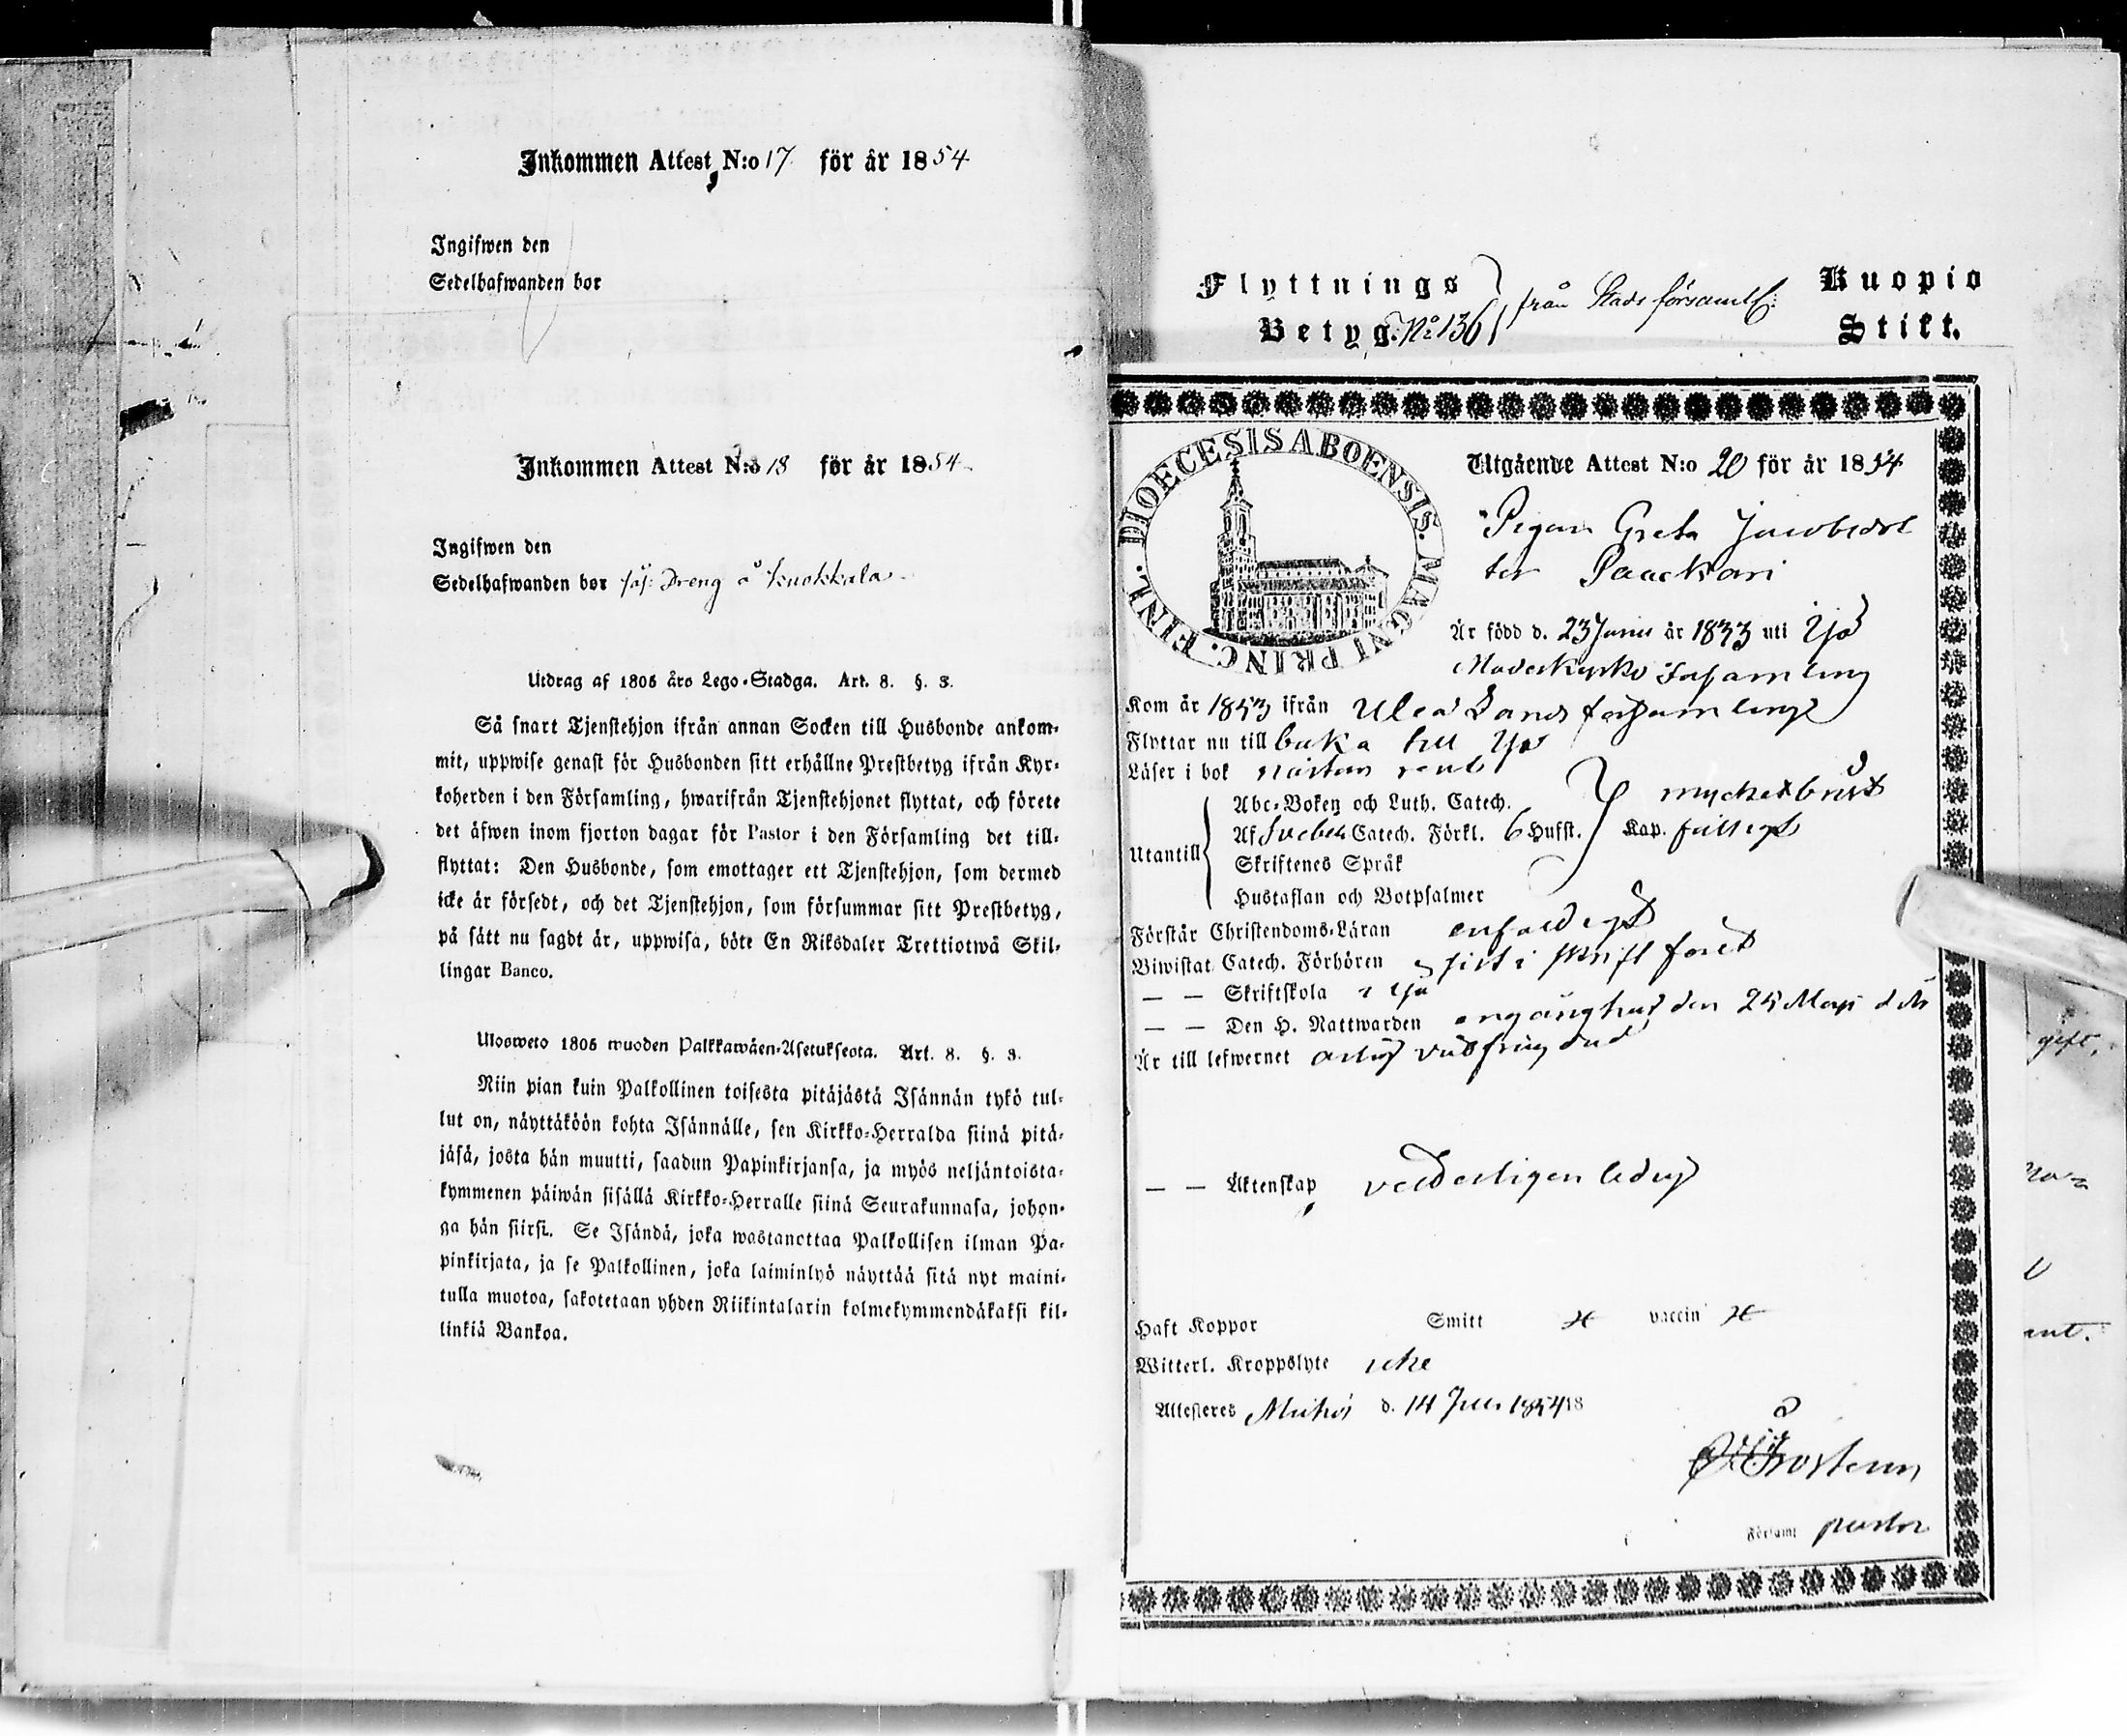 Inkommen Attest N:o 17 för år 1854
Ingifwen den
Sedelhafwanden bor
Inkommen Attest N:o 18 för år 1854
Ingifwen den
Sedelhafwanden bor Dreng å Kuokkala
Utdrag af 1805 års Lego-Stadga. Art. 8. §. 3.
Så snart Tjenstehjon ifrån annan Socken till Husbonde ankom-
mit, uppwise genast för Husbonden sitt erhållne Prestbetyg ifrån Kyr-
koherden i den Församling, hwarifrån Tjenstehjonet flyttat, och förete
det äfwen inom fjorton dagar för Pastor i den Församling det till-
flyttat: Den Husbonde, som emottager ett Tjenstehjon, som dermed
icke är försedt, och det Tjenstehjon, som försummar sitt Prestbetyg,
på sätt nu sagdt är, uppwisa, böte En Riksdaler Trettiotwå Skil-
lingar Banco.
Ulosweto 1805 wuoden Palkkawäen-Asetuksesta. Art. 8. §. 3.
Niin pian kuin Palkollinen toisesta pitäjästä Isännän tykö tul-
lut on, näyttäköön kohta Isännälle, sen Kirkko-Herralda siinä pitä-
jäsä, josta hän muutti, saadun Papinkirjansa, ja myös neljäntoista-
kymmenen päiwän sisällä Kirkko-Herralle siinä Seurakunnasa, johon-
ga hän siirsi. Se Isändä, joka wastanottaa Palkollisen ilman Pa-
pinkirjata, ja se Palkollinen, joka laiminlyö näyttää sitä nyt maini-
tulla muotoa, sakotetaan yhden Riikintalarin kolmekymmendäkaksi kil-
linkiä Bankoa.
Flyttnings Kuopio
Betyg. N:o 136 från Stads församl: Stift.
DIOECESIS ABOENSIS. MAGNI PRINC. FINL.
Utgående Attest N:o 20 för år 1854
Pigan Greta Jacobsdot
ter Paackari
Är född d. 23 Junii år 1833 uti Ijo
Moderkyrko församling
Kom år 1853 ifrån Uleå Lands församling
Flyttar nu till baka till Ijo
Läser i bok nästan rent
Abc-Boken och Luth. Catech. mycket brist
Utantill Af Svebel. Catech. Förkl. 6 Hufst. Kap. fälligt
Skriftenes Språk
Hustaflan och Botpsalmer
Förstår Christendoms-Läran enfaldigt
Biwistat Catech. Förhören sist i
— — Skriftskola i Ijo
— — Den H. Nattwarden den 25 Maji d år
Är till lefwernet ärlig
— — Äktenskap veterligen ledig
Haft Koppor Smitt vaccin
Witterl. Kroppslyte icke
Attesteres Muhos d. 14 1854 18
Frosterus
Församl pastor